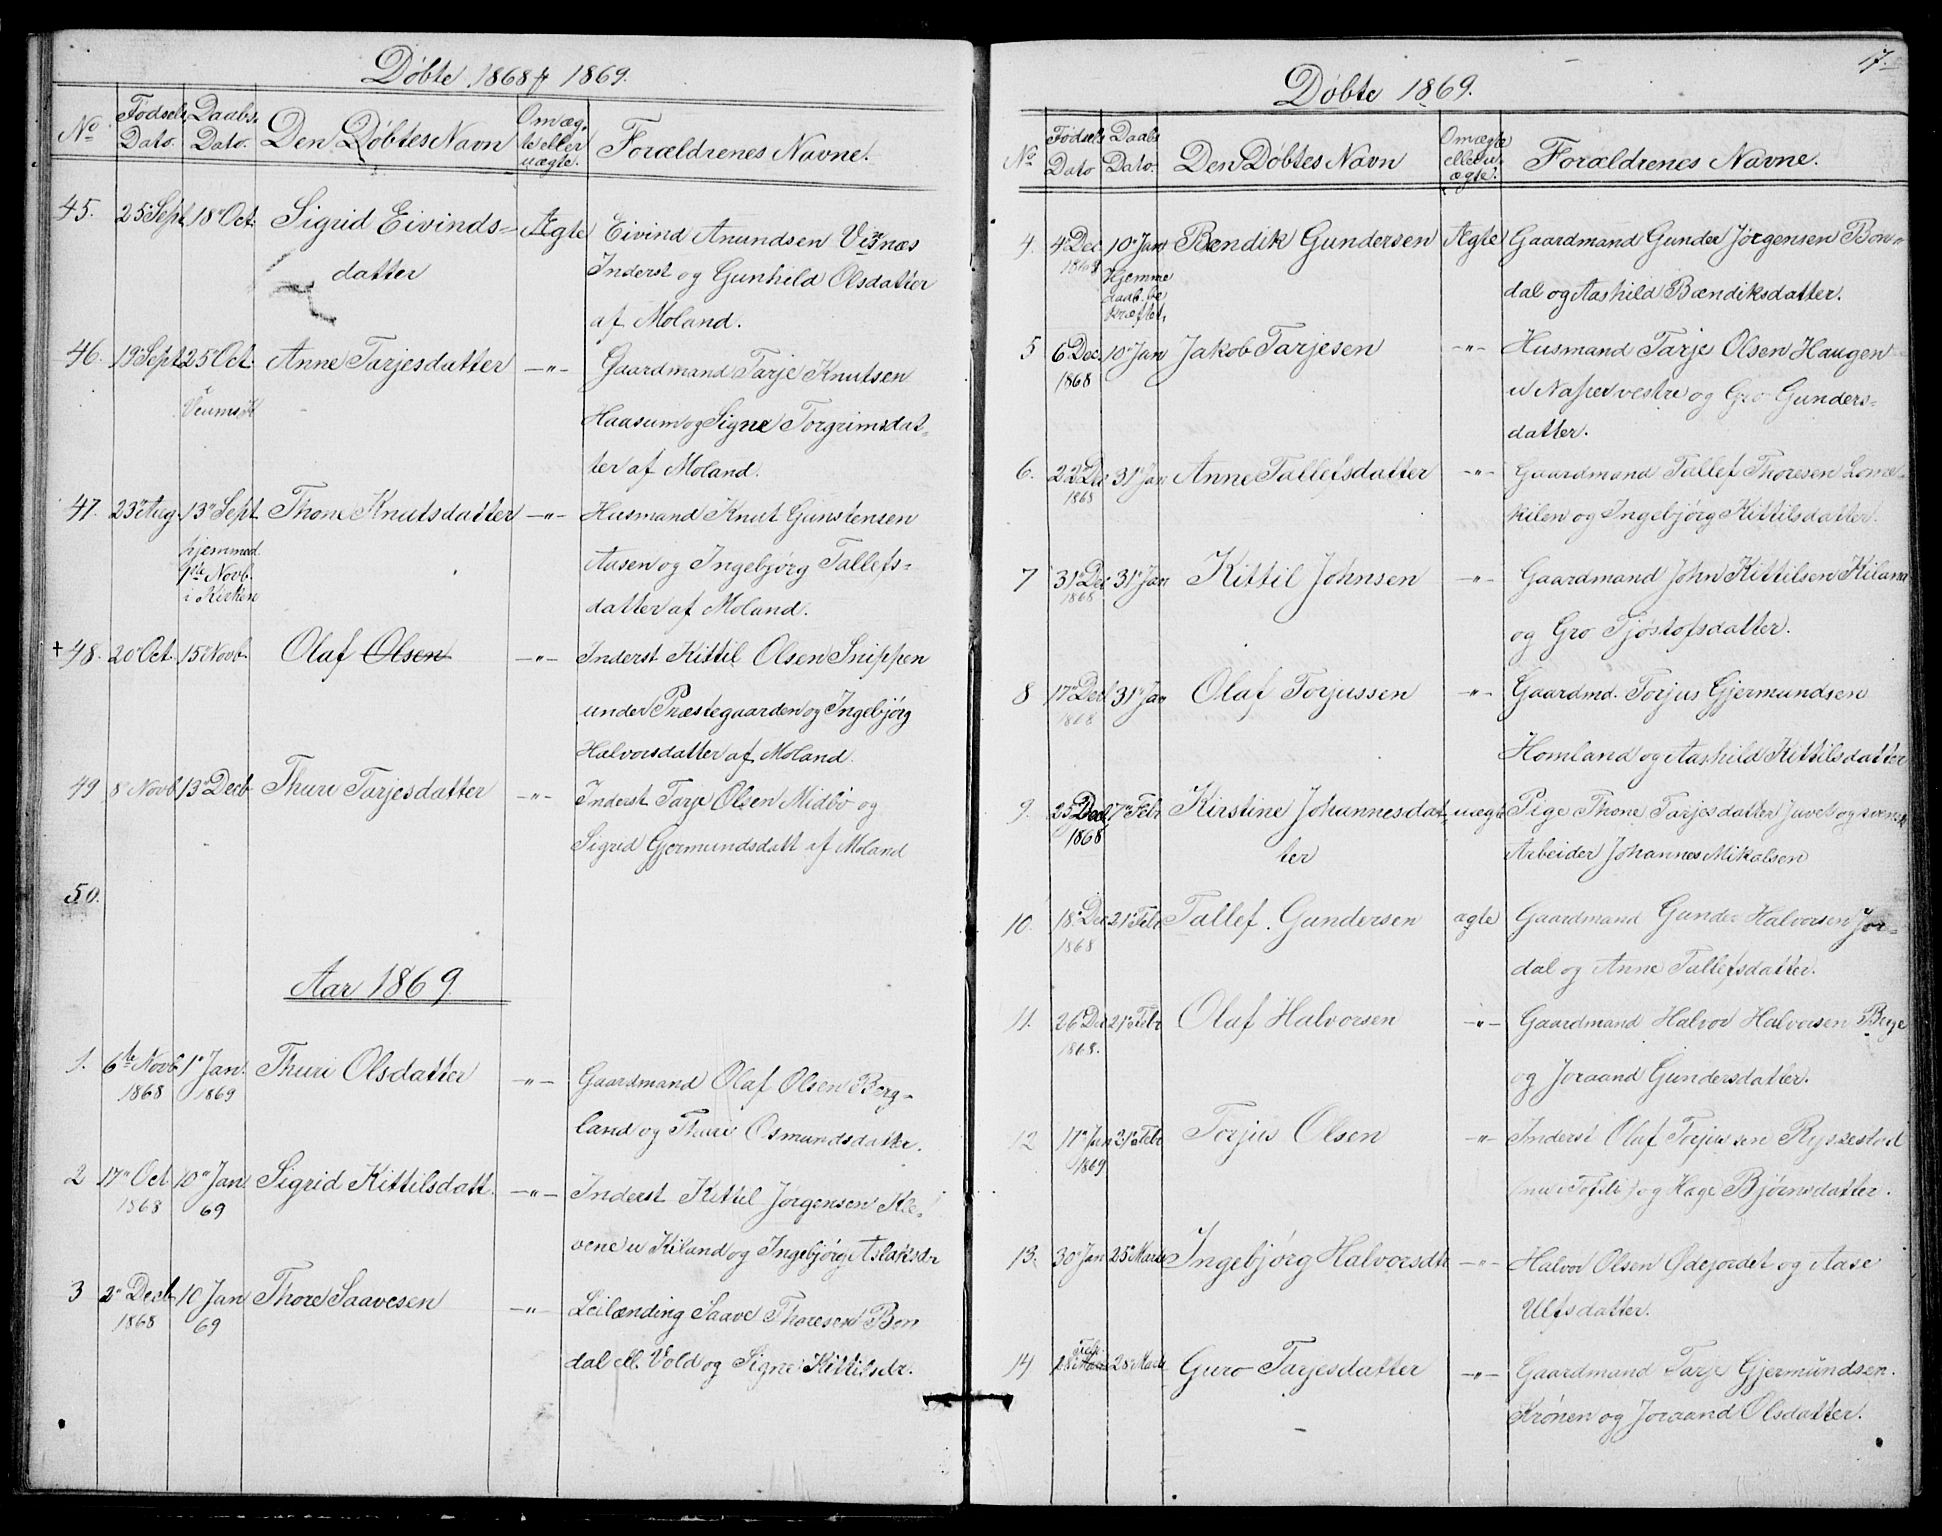 Døbte 1868 & 1869.
No
Fødsels Dato.
Daabs Dato.
Den Døbtes Navn
Om æg-
te eller
uægte.
Forældrenes Navne.
45. 25 Sept 18 Oct. Sigrid Eivinds= Ægte Eivind Anundsen Vesnæs
datter Inderst og Gunhild Olsdatter
af Moland.
46. 19 Sept 25 Oct. Anne Tarjesdatter —"— Gaardmand Tarje Knutsen
Haasum og Signe Torgrimsdat=
ter af Moland.
47. 23 Aug. 13 Sept Thone Knutsdatter —"— Husmand Knut Gunstensen
hjemmed. Aasen og Ingebjørg Tallefs=
1ste Novb. datter af Moland.
i Kirken
+ 48. 20 Oct. 15 Novb. Olaf Olsen —"— Inderst Kittil Olsen Snippen
under Præstegaarden og Ingebjørg
Halvorsdatter af Moland.
49 8 Novb 13 Decb Thuri Tarjesdatter —"— Inderst Tarje Olsen Midbø og
Sigrid Gjermundsdatt af Moland
50.
Aar 1869.
1. 6te Novb. 1 Jan. Thuri Olsdatter —"— Gaardmand Olaf Olsen Berg=
1868 1869 land og Thuri Osmundsdatter.
2 17 Oct 10 Jan. Sigrid Kittilsdatt. —"— Inderst Kittil Jørgensen Kle=
1868 69 vene u Kiland og Ingebjørg Aslaksdr
3 2 Decb 10 Jan Thore Saavesen —"— Leilænding Saave Thoresen Bon
1868 69 dal ell. Vold og Signe Kittilsdr.
17.
Døbte 1869.
No
Fødsels Dato
Daabs Dato.
Den Døbtes Navn
Om ægte
eller u=
ægte.
Forældrenes Navne.
4. 4 Dec 10 Jan Bendik Gundersen Ægte Gaardmand Gunder Jørgensen Bon=
1868 Hjemme dal og Aashild Bændiksdatter.
daab be
kræftet,
5 6 Dec. 10 Jan Jakob Tarjesen —"— Husmand Tarje Olsen Haugen
1868 u Naper vestre og Gro Gunders=
datter.
6. 22 Dec 31 Jan Anne Tallefsdatter —"— Gaardmand Tallef Thoresen Lome=
1868 kilen og Ingebjørg Kittilsdatter.
7 31 Dec 31 Jan Kittil Johnsen —"— Gaardmand John Kittilsen Kiland
1868 og Gro Tjøstofsdatter.
8 17 Decb 31 Jan Olaf Torjussen —"— Gaardmd. Torjus Gjermundsen
1868 Homland og Aashild Kittilsdatter
9. 25 Decb. 7 Febr Kirstine Johannesdat= uægte Pige Thone Tarjesdatter Javet og svensk
1868 ter Arbeider Johannes Mikalsen
10. 18 Dec 21 Febr Tallef Gundersen ægte Gaardmand Gunder Halvorsen Jor=
1868 dal og Anne Tallefsdatter.
11. 26 Dec 21 Febr Olaf Halvorsen —"— Gaardmand Halvor Halvorsen Berge
1868. og Joraand Gundersdatter.
12 17 Jan 21 Febr Torjus Olsen —"— Inderst Olaf Torjussen Ryssestad
1869 og Hage Bjørnsdatter.
13. 30 Jan 25 Marts Ingebjørg Halvorsdtr —"— Halvor Olsen Ødejordet og Aase
Ulfsdatter.
14 Feb. 28 Marts Guro Tarjesdatter —"— Gaardmand Tarje Gjermundsen.
Krønen og Joraand Olsdatter.